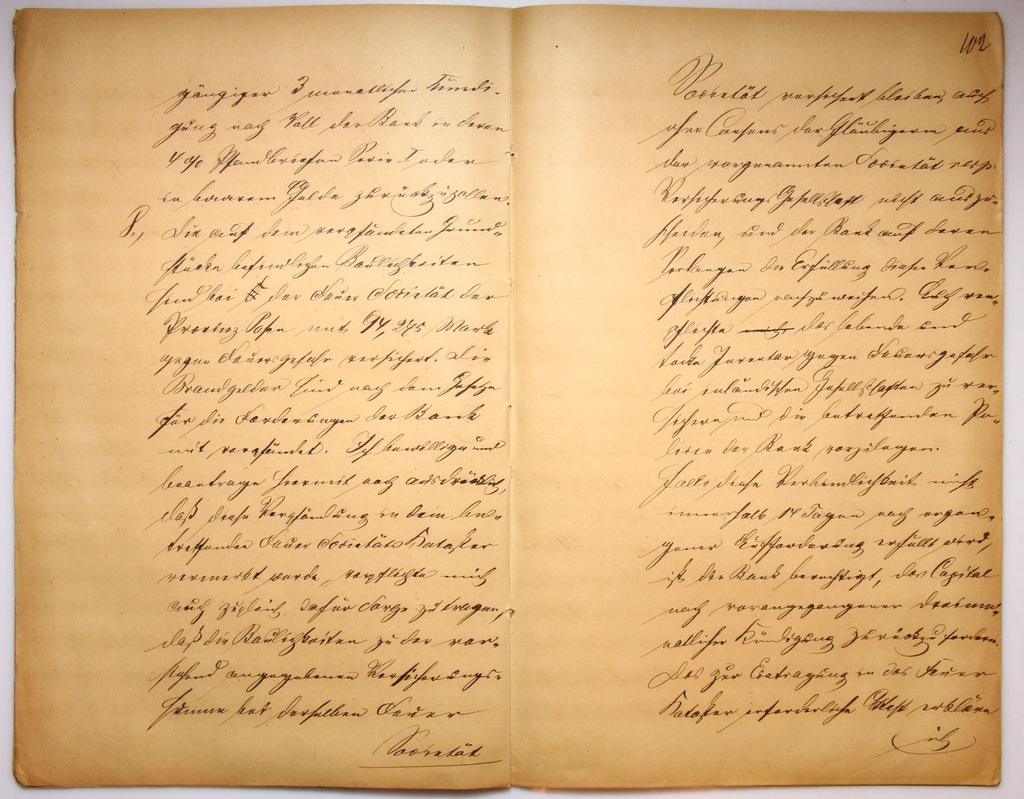 gängiger 3 monatlicher Kündi-
gung nach Wahl der Bank in deren
4 % Pfandbriefen Serie I oder
in baarem Gelde zurückzuzahlen.
8., Die auf dem verpfändeten Grund-
stücke befindlichen Baulichkeiten
sind bei der Feuer Societät der
Provinz Posen mit 94,275 Mark
gegen Feuersgefahr versichert. Die
Brandgelder sind nach dem Gesetze
für die Forderungen der Bank
mit verpfändet. Ich bewillige und
beantrage hiermit noch ausdrücklich,
daß diese Verpfändung in dem be-
treffenden Feuer Societäts Kataster
vermerkt werde, verpflichte mich
auch zugleich, dafür Sorge zu tragen,
daß die Baulichkeiten zu der vor-
stehend angegebenen Versicherungs-
summe bei derselben Feuer
Societät
102
Societät versichert bleiben, auch
ohne Consens der Gläubigerin aus
der vorgenannten Societät resp.
Versicherungs Gesellschaft nicht auszu-
scheiden, und der Bank auf deren
Verlangen die Erfüllung dieser Ver-
pflichtungen nachzuweisen. Auch ver-
pflichte das lebende und
todte Inventar gegen Feuersgefahr
bei inländischen Gesellschaften zu ver-
sichern und die betreffenden Po-
licen der Bank vorzulegen.
Falls diese Verbindlichkeit nicht
innerhalb 14 Tagen nach ergan-
gener Aufforderung erfüllt wird,
ist die Bank berechtigt, das Capital
nach vorangegangener dreimo-
natlicher Kündigung zurückzufordern.
Das zur Eintragung in das Feuer
Kataster erforderliche Attest erkläre
ich